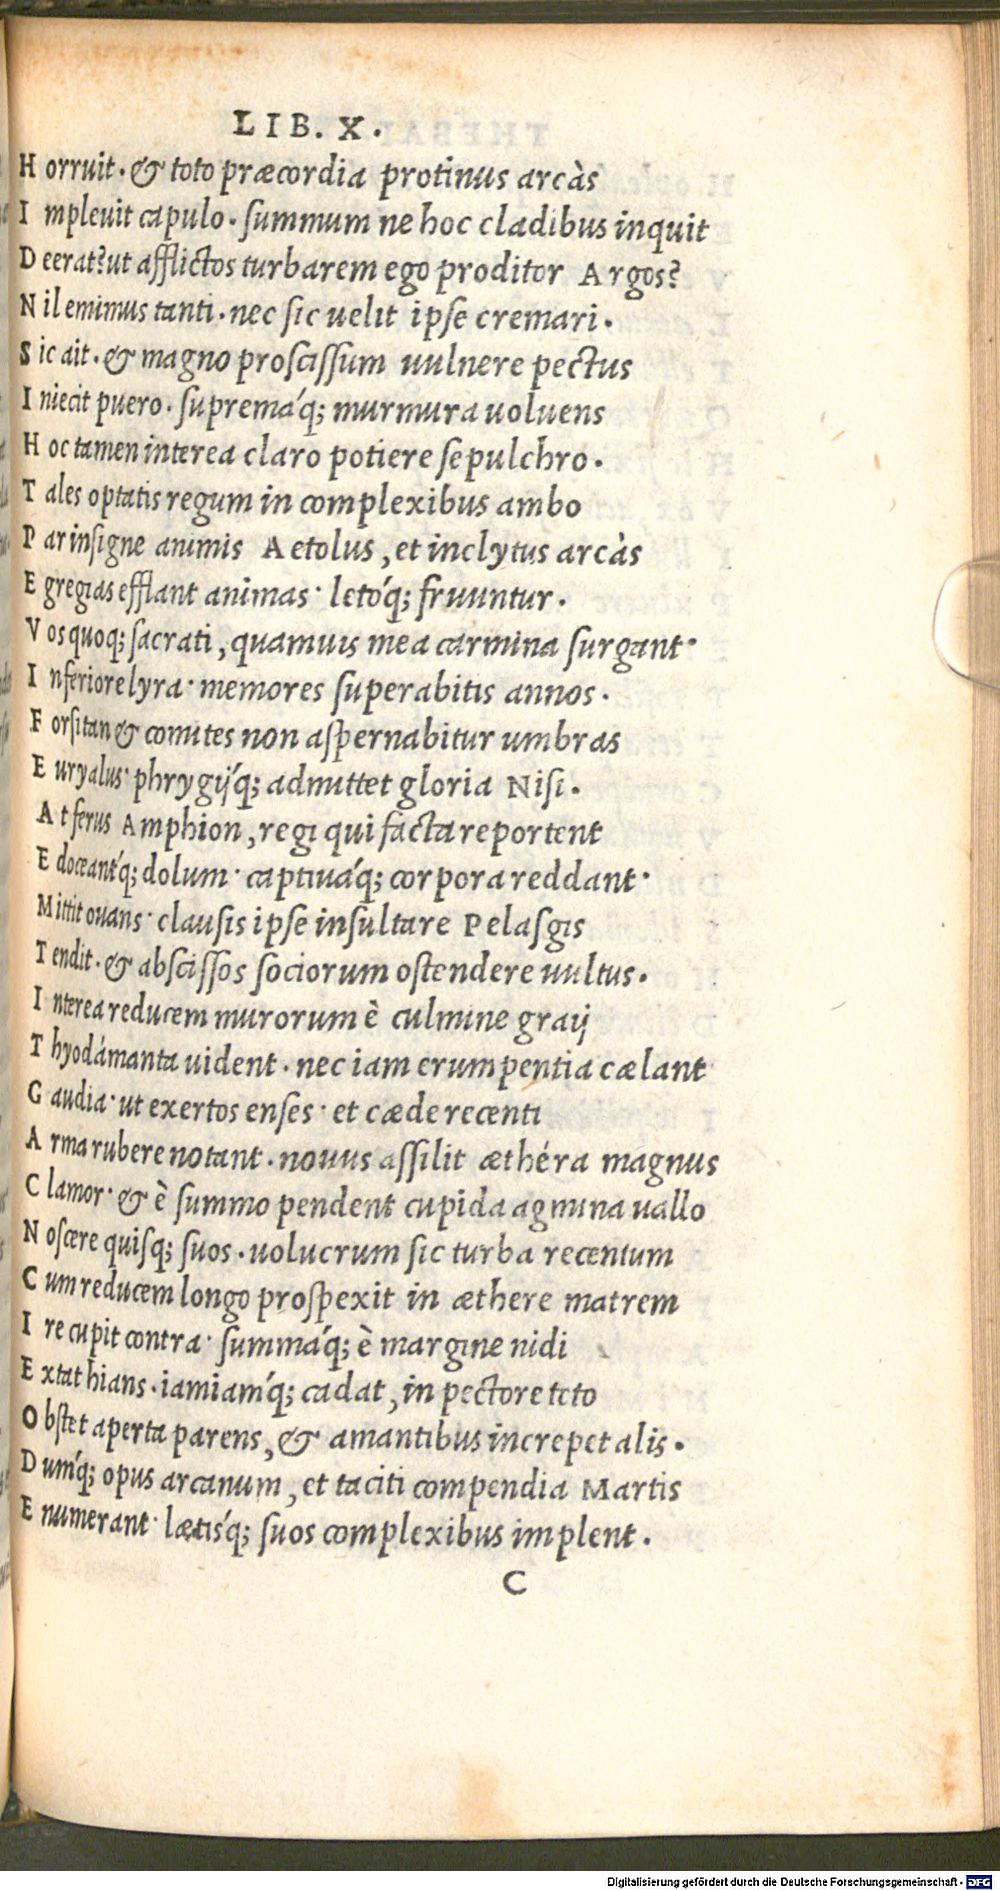 LIB. X.
Horruit. & toto præcordia protinus arcàs
Impleuit capulo. summum ne hoc cladibus inquit
Deerat? ut afflictos turbarem ego proditor Argos?
Nil emimus tanti. nec sic uelit ipse cremari.
Sic ait. & magno proscissum uulnere pectus
Iniecit puero. supremáq; murmura uoluens
Hoc tamen interea claro potiere sepulchro.
Tales optatis regum in complexibus ambo
Par insigne animis Aetolus, et inclytus arcàs
Egregias efflant animas· letóq; fruuntur.
Vos quoq; sacrati, quamuis mea carmina surgant·
Inferiore lyra· memores superabitis annos.
Forsitan & comites non aspernabitur umbras
Euryalus· phrygijq́; admittet gloria Nisi.
At ferus Amphion, regi qui facta reportent
Edoceantq́; dolum· captiuáq; corpora reddant·
Mittit ouans· clausis ipse insultare Pelasgis
Tendit. & abscissos sociorum ostendere uultus.
Interea reducem murorum è culmine graij
Thyodámanta uident. nec iam erumpentia cælant
Gaudia· ut exertos enses· et cæde recenti
Arma rubere notant. nouus assilit æthéra magnus
Clamor· & è summo pendent cupida agmina uallo
Noscere quisq; suos. uolucrum sic turba recentum
Cum reducem longo prospexit in æthere matrem
Ire cupit contra· summáq; è margine nidi
Extat hians. iamiamq́; cadat, in pectore toto
Obstet aperta parens, & amantibus increpet alis.
Dumq́; opus arcanum, et taciti compendia Martis
Enumerant· lætisq́; suos complexibus implent.
C
Digitalisierung gefördert durch die Deutsche Forschungsgemeinschaft - DFG